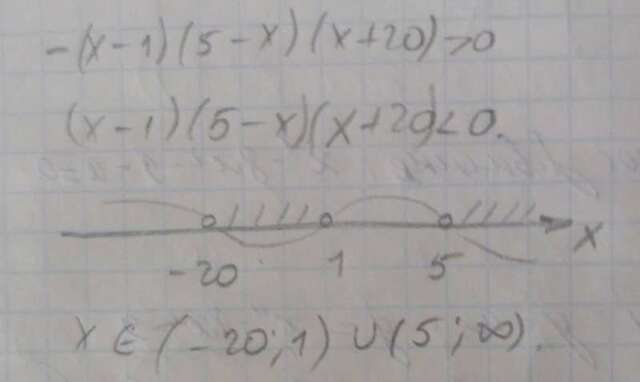 -(x-1)(5-x)(x+20)>0
(x-1)(5-x)(x+20)<0.
-20 1 5 x
x ∈ (-20; 1) ∪ (5; ∞).